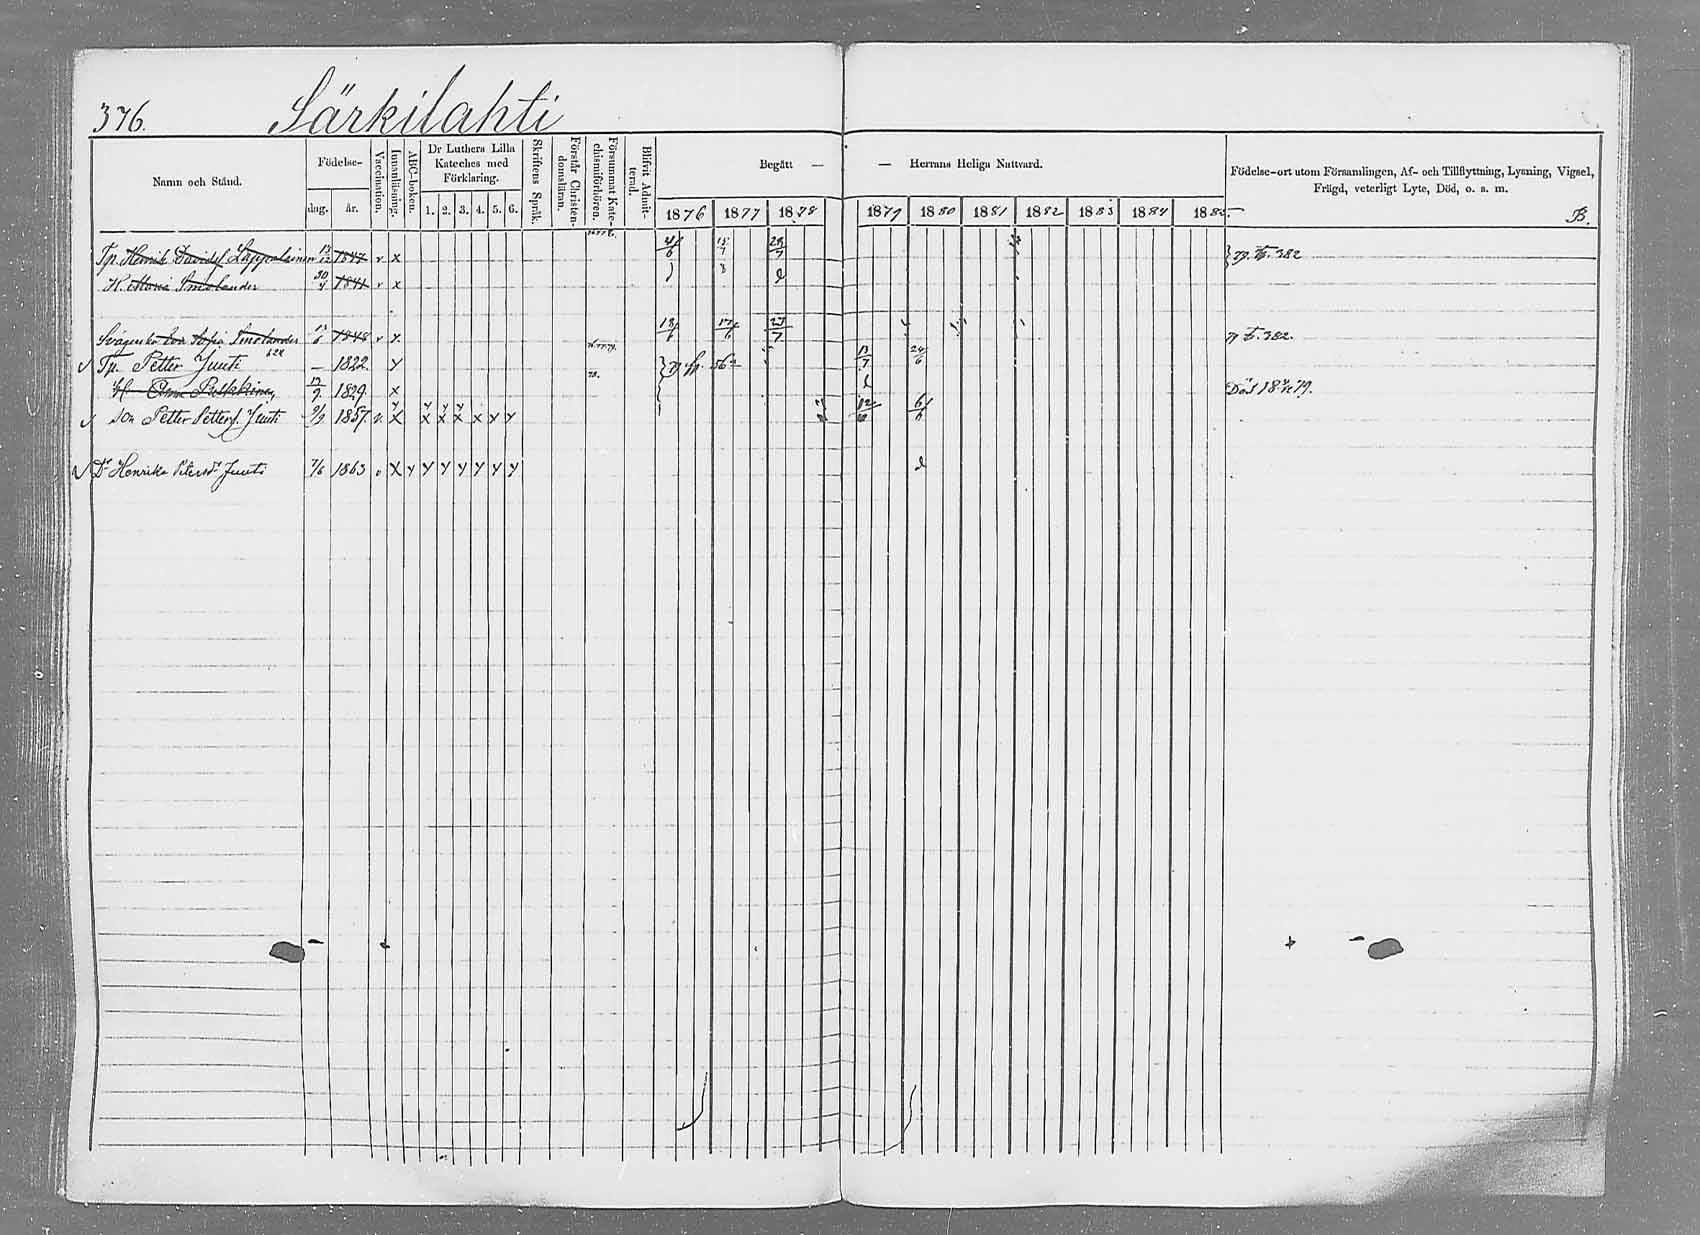 376. Särkilahti
Namn och Stånd.
Födelse-
dag. år.
Vaccination.
Innanläsning.
ABC-boken.
Dr Luthers Lilla
Kateches med
Förklaring.
1. 2. 3. 4. 5. 6.
Skriftens Språk.
Förstår Christen-
domsläran.
Försummat Kate-
chismiförhören.
Blifvit Admit-
terad.
Begått — — Herrans Heliga Nattvard.
1876 1877 1878 1879 1880 1881 1882 1883 1884 1885
Födelse-ort utom Församlingen, Af- och Tillflyttning, Lysning, Vigsel,
Frägd, veterligt Lyte, Död, o. s. m.
B.
Tp. Henrik Davidsf Lappalainen 13/12 1847 v x 79. 382
H. Maria Smolander 30/4 1841 v x
Svägerska Eva Sofia Smolander 13/6 1848 v 382.
Tp. Petter Juuti — 1822. 13/7 24/6
H. Anna Pulkkinen 17/9 1829. x Död 79.
Son Petter Petterf. Juuti 9/9 1857. v. x x x x x 6/6
Dr Henrika Petersdr Juuti 7/6 1863 v x